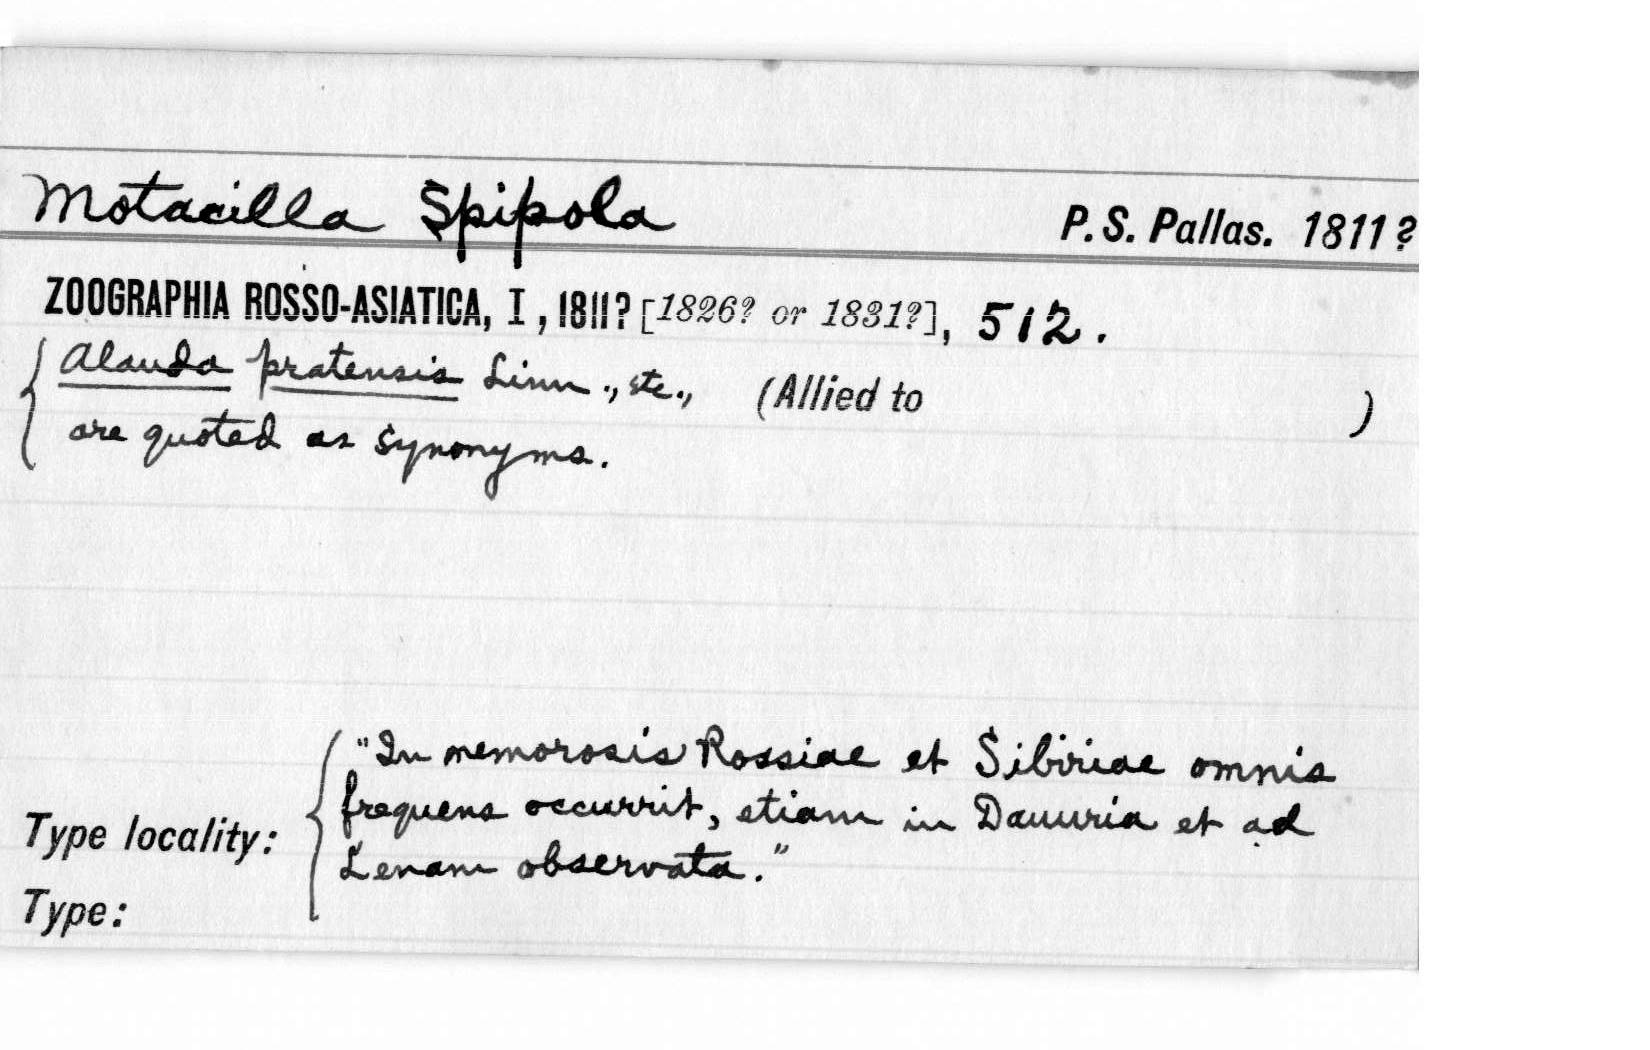 Motacilla Spipola P. S. Pallas. 1811?
ZOOGRAPHIA ROSSO-ASIATICA, I, 1811? [1826? or 1831?], 512.
Alauda pratensis Linn., etc., (Allied to )
are quoted as synonyms.
"In nemorosis Rossiae et Sibiriae omnis
frequens occurrit, etiam in Dauuria et ad
Type locality:
Lenam observata."
Type: